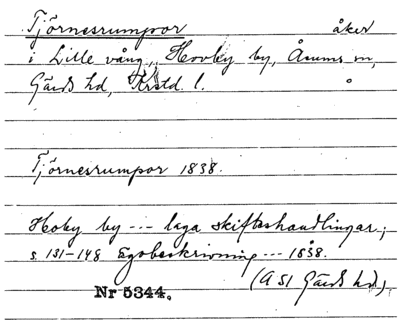 Tjörnesrumpor åker
i Lille vång, Hovby by, Åhums sn,
Gärds hd, Krstd. l.
Tjörnesrumpor 1838.
Hoby by --- laga skifteshandlingar;
s. 131-148 Egobeskrivning --- 1838.
(A 51 Gärds hd)
Nr 5344.